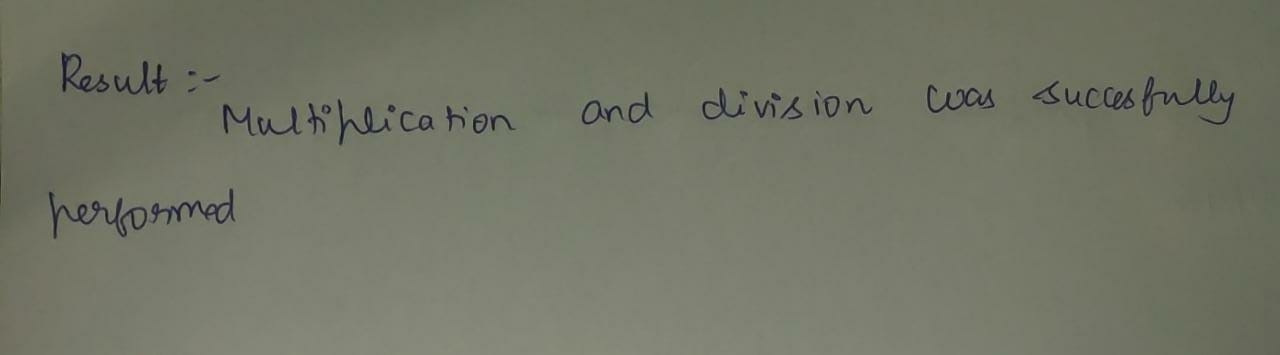 Result :-
Multiplication and division was succesfully
performed